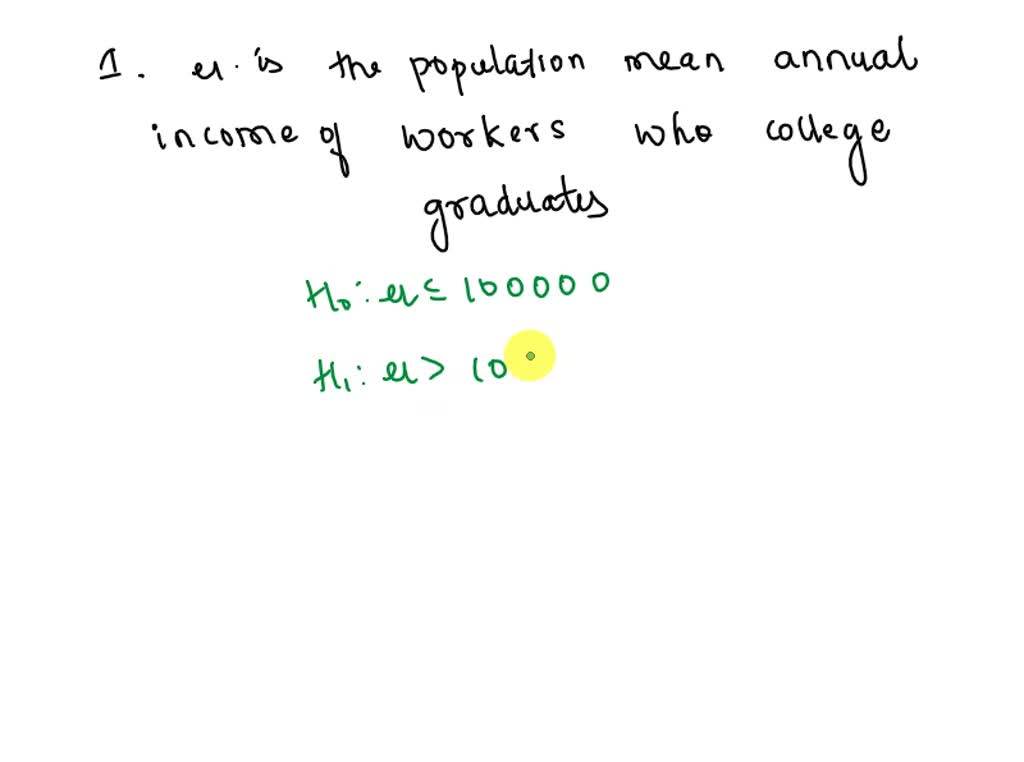 1. μ is the population mean annual
income of workers who college
graduates
H₀: μ ≤ 100000
H₁: μ > 10